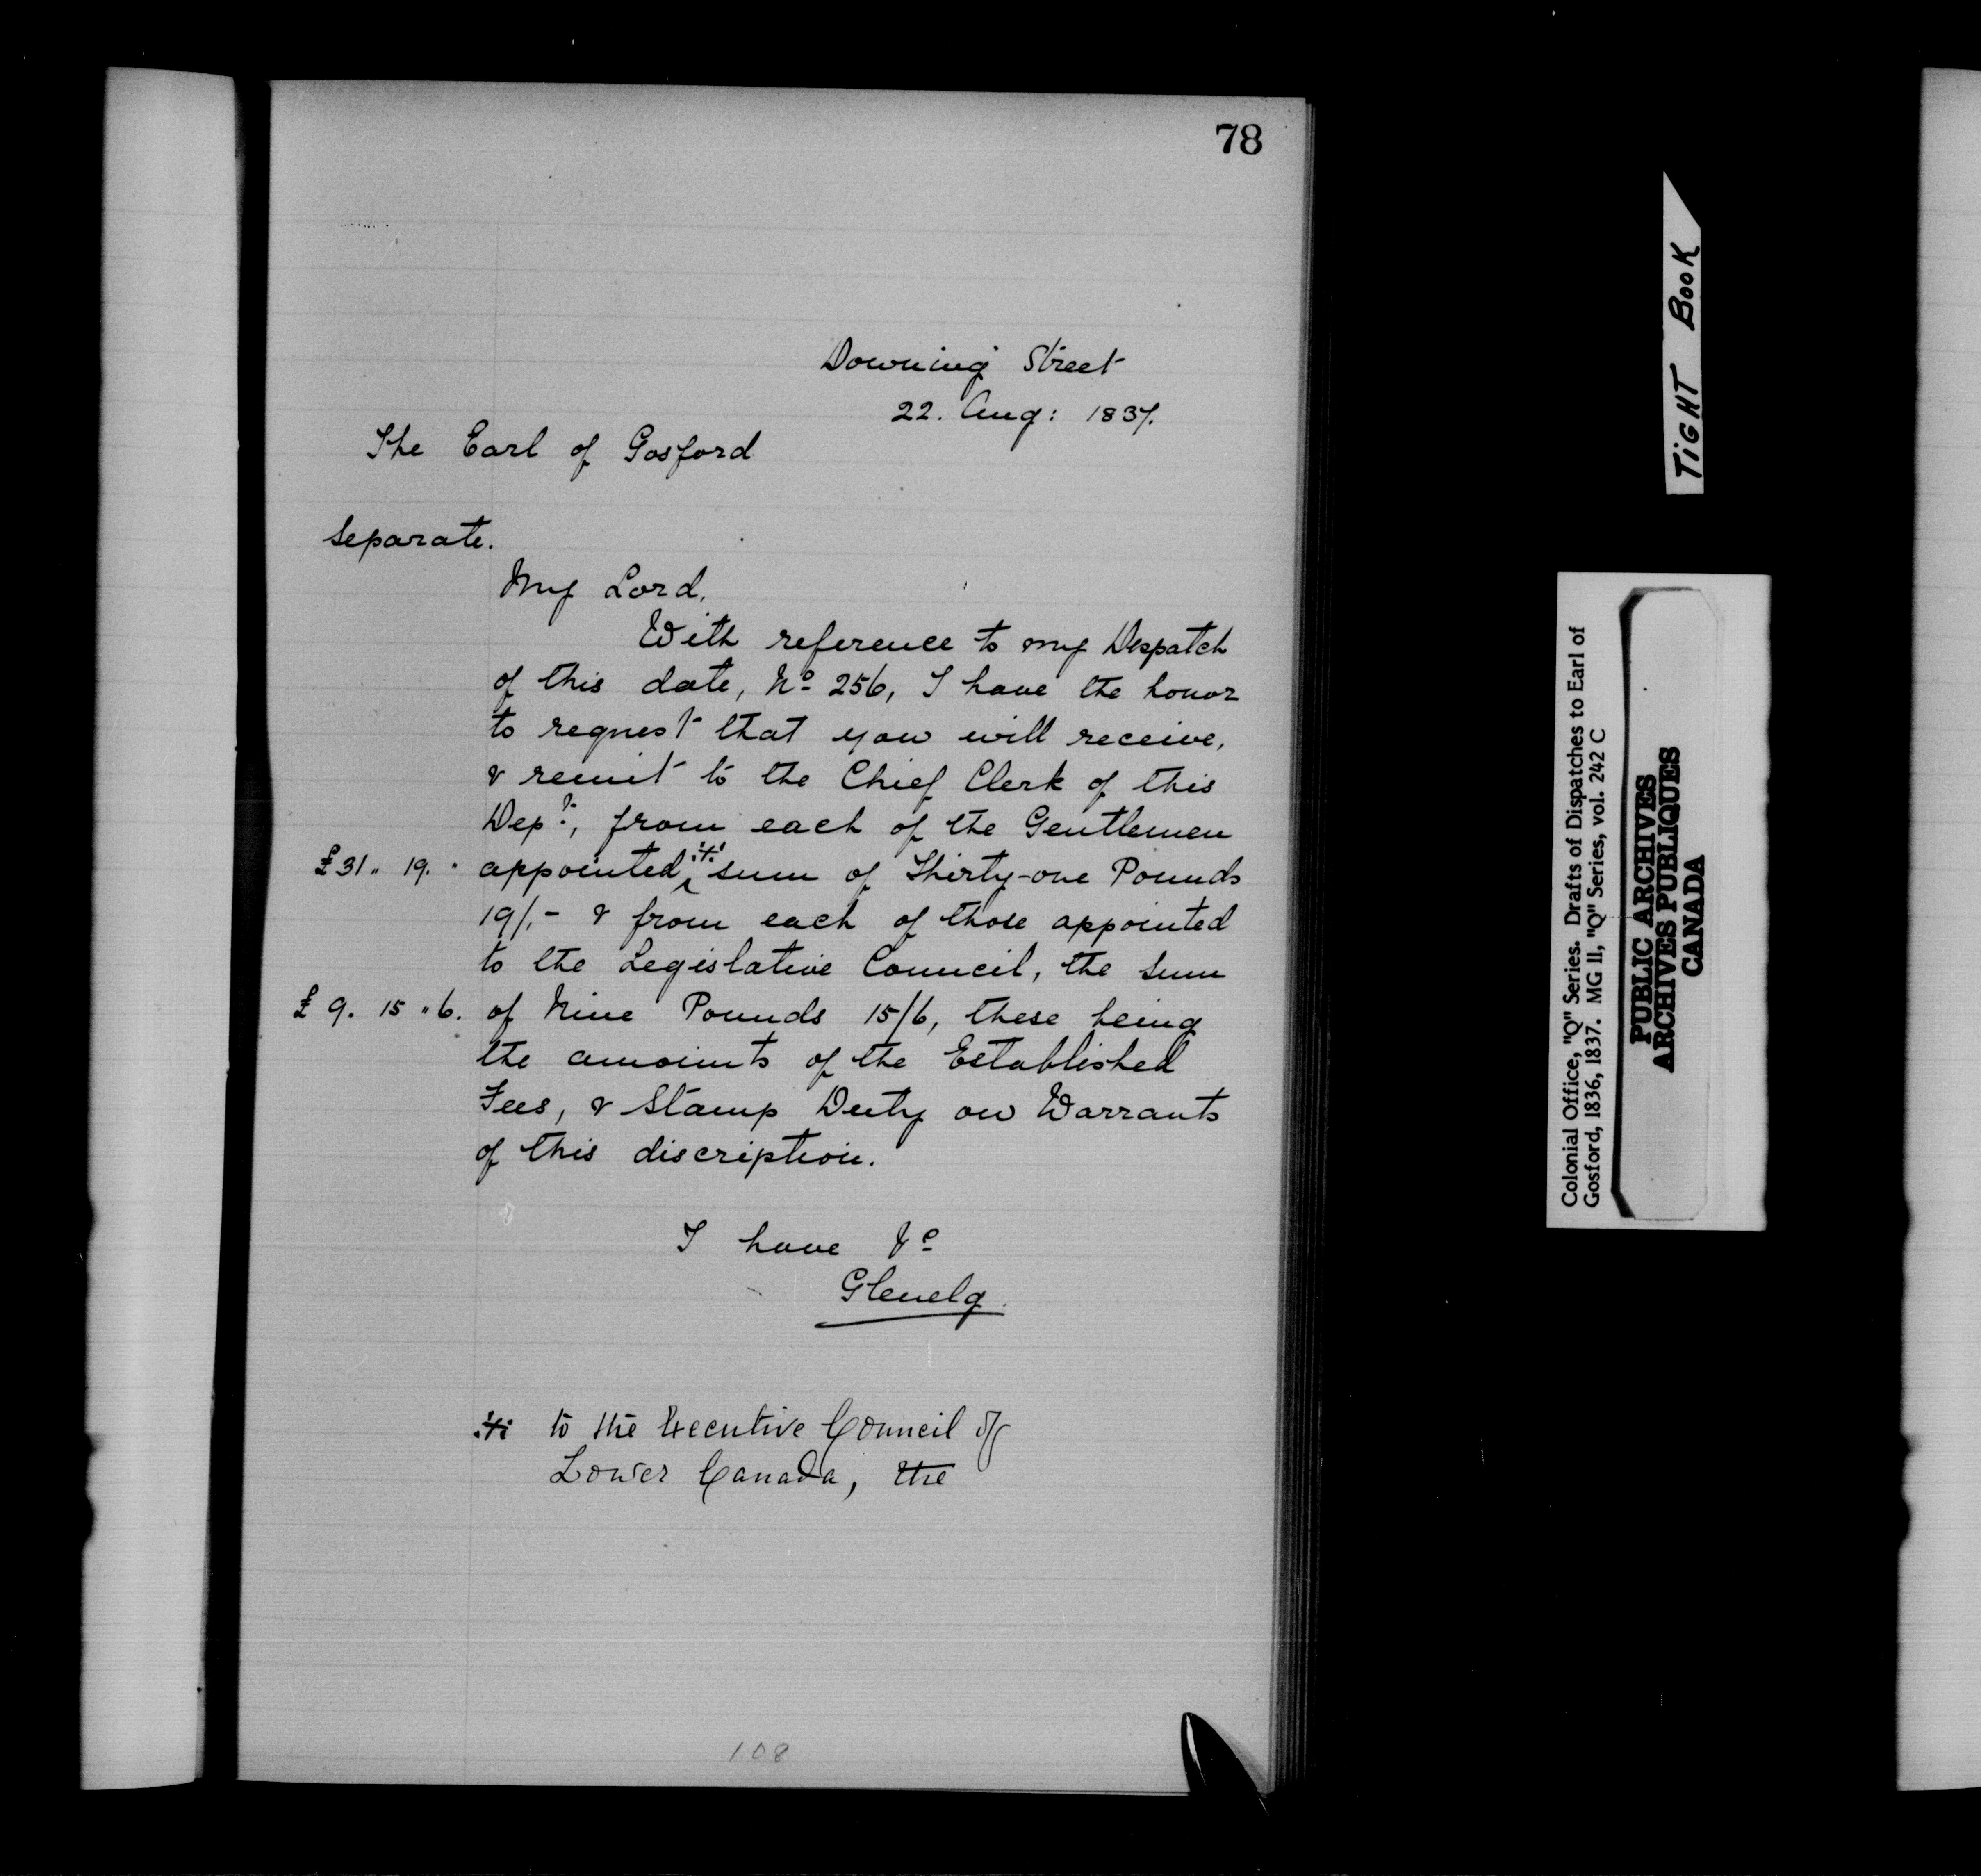 78
Downing Street
22. Aug: 1837.
The Earl of Gosford
Separate.
My Lord,
With reference to my Despatch
of this date, No. 256, I have the honor
to request that you will receive,
& remit to the Chief Clerk of this
Dept., from each of the Gentlemen
£31 " 19. " appointed ⁒ sum of Thirty-one Pounds
19/,- & from each of those appointed
to the Legislative Council, the sum
£ 9. 15 " 6. of Nine Pounds 15/6, these being
the amounts of the Established
Fees, & Stamp Duty on Warrants
of this discription.
I have &c
Glenelg.
⁒ to the Executive Council of
Lower Canada, the
108
TIGHT BOOK
Colonial Office, "Q" Series. Drafts of Dispatches to Earl of
Gosford, 1836, 1837. MG 11, "Q" Series, vol. 242 C
PUBLIC ARCHIVES
ARCHIVES PUBLIQUES
CANADA